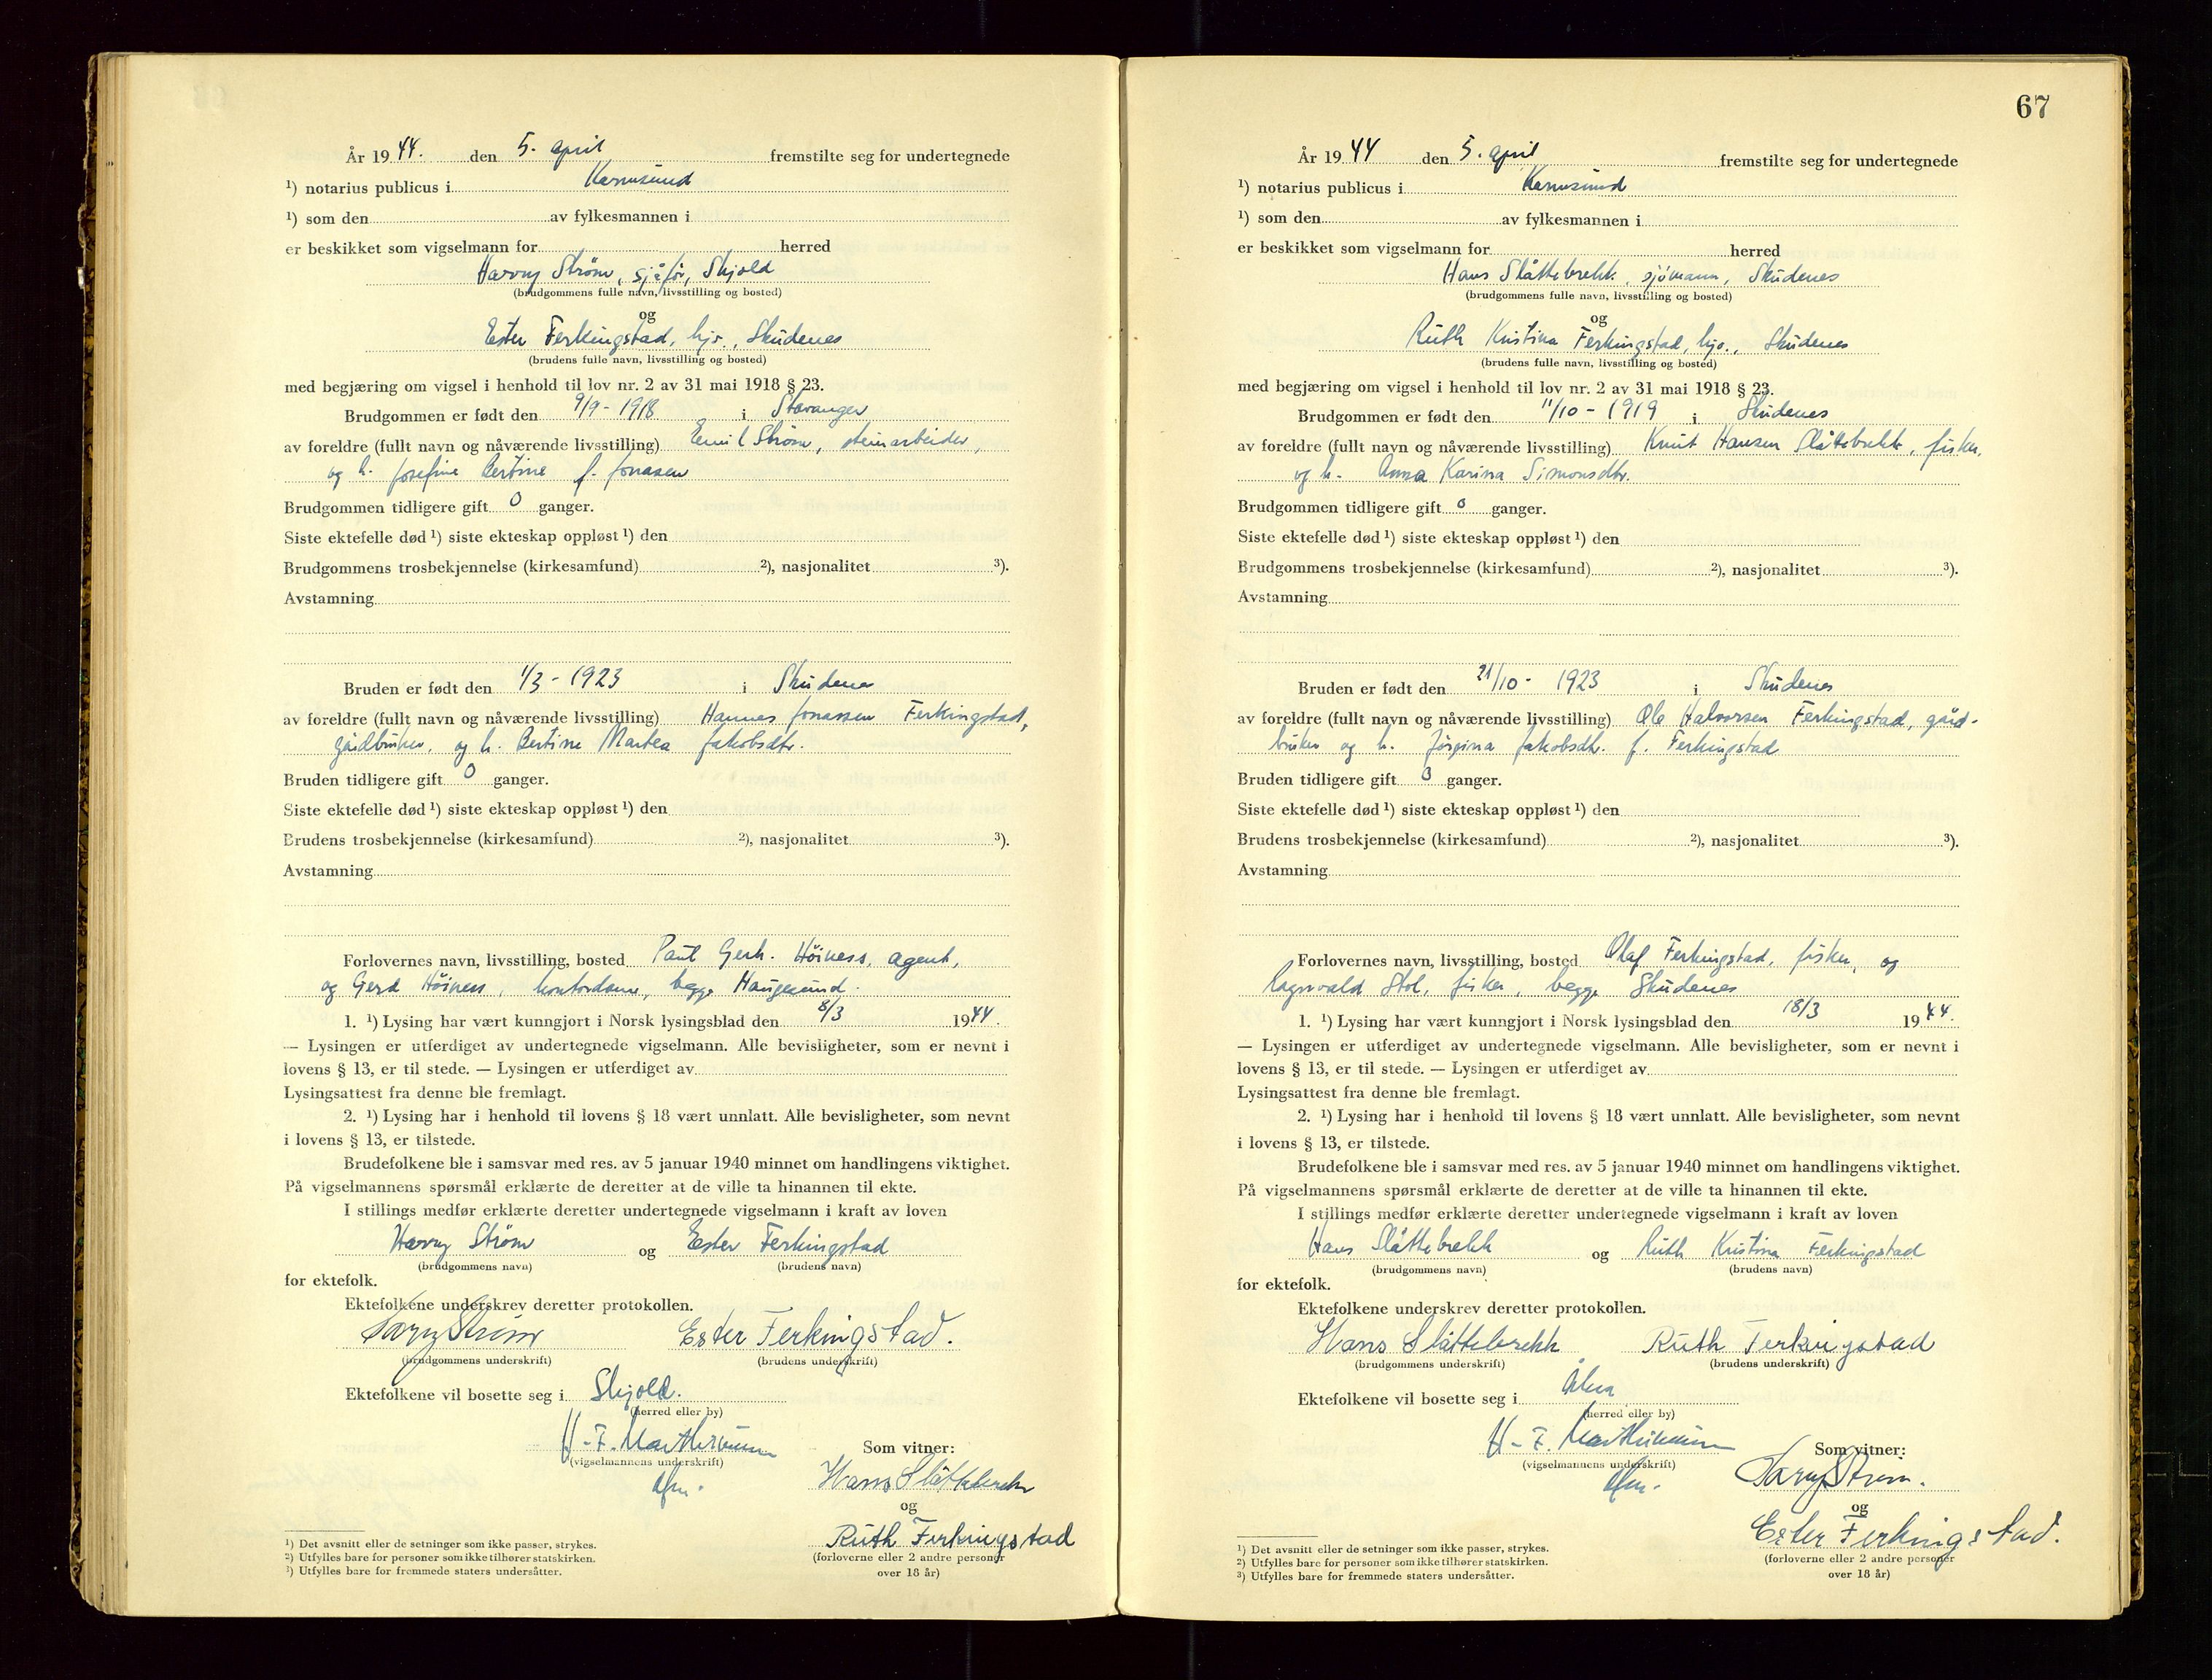 År 19 44. den 5. april fremstilte seg for undertegnede
¹) notarius publicus i Karmsund
¹) som den av fylkesmannen i
er beskikket som vigselmann for herred
Harry Strøm, sjåfør, Skjold
(brudgommens fulle navn, livsstilling og bosted)
og
Ester Ferkingstad, hjv., Skudenes
(brudens fulle navn, livsstilling og bosted)
med begjæring om vigsel i henhold til lov nr. 2 av 31 mai 1918 § 23.
Brudgommen er født den 9/9 - 1918 i Stavanger
av foreldre (fullt navn og nåværende livsstilling) Emil Strøm, steinarbeider,
og h. Josefine Bertine f. Jonasen
Brudgommen tidligere gift 0 ganger.
Siste ektefelle død ¹) siste ekteskap oppløst ¹) den
Brudgommens trosbekjennelse (kirkesamfund) ²), nasjonalitet ³).
Avstamning
Bruden er født den 1/3 - 1923 i Skudenes
av foreldre (fullt navn og nåværende livsstilling) Hannes Jonassen Ferkingstad,
gårdbruker, og h. Bertine Martea Jakobsdtr.
Bruden tidligere gift 0 ganger.
Siste ektefelle død ¹) siste ekteskap oppløst ¹) den
Brudens trosbekjennelse (kirkesamfund) ²), nasjonalitet ³).
Avstamning
Forlovernes navn, livsstilling, bosted Paul Gerh. Höiness, agent,
og Gerd Höiness, kontordame, begge Haugesund.
1. ¹) Lysing har vært kunngjort i Norsk lysingsblad den 8/3 1944.
— Lysingen er utferdiget av undertegnede vigselmann. Alle bevisligheter, som er nevnt i
lovens § 13, er til stede. — Lysingen er utferdiget av
Lysingsattest fra denne ble fremlagt.
2. ¹) Lysing har i henhold til lovens § 18 vært unnlatt. Alle bevisligheter, som nevnt
i lovens § 13, er tilstede.
Brudefolkene ble i samsvar med res. av 5 januar 1940 minnet om handlingens viktighet.
På vigselmannens spørsmål erklærte de deretter at de ville ta hinannen til ekte.
I stillings medfør erklærte deretter undertegnede vigselmann i kraft av loven
Harry Strøm og Ester Ferkingstad
(brudgommens navn) (brudens navn)
for ektefolk.
Ektefolkene underskrev deretter protokollen.
Harry Strøm Ester Ferkingstad.
(brudgommens underskrift) (brudens underskrift)
Ektefolkene vil bosette seg i Skjold.
(herred eller by)
(vigselmannens underskrift)
Som vitner:
Hans Slåttebrekk
og
Ruth Ferkingstad
(forloverne eller 2 andre personer
over 18 år)
¹) Det avsnitt eller de setninger som ikke passer, strykes.
²) Utfylles bare for personer som ikke tilhører statskirken.
³) Utfylles bare for fremmede staters undersåtter.
67
År 19 44 den 5. april fremstilte seg for undertegnede
¹) notarius publicus i Karmsund
¹) som den av fylkesmannen i
er beskikket som vigselmann for herred
Hans Slåttebrekk, sjömann, Skudenes
(brudgommens fulle navn, livsstilling og bosted)
og
Ruth Kristina Ferkingstad, hjv., Skudenes
(brudens fulle navn, livsstilling og bosted)
med begjæring om vigsel i henhold til lov nr. 2 av 31 mai 1918 § 23.
Brudgommen er født den 11/10 - 1919 i Skudenes
av foreldre (fullt navn og nåværende livsstilling) Knut Hansen Slåttebrekk, fisker,
og h. Anna Karina Simonsdtr.
Brudgommen tidligere gift 0 ganger.
Siste ektefelle død ¹) siste ekteskap oppløst ¹) den
Brudgommens trosbekjennelse (kirkesamfund) ²), nasjonalitet ³).
Avstamning
Bruden er født den 21/10 - 1923 i Skudenes
av foreldre (fullt navn og nåværende livsstilling) Ole Halvorsen Ferkingstad, gård-
bruker og h. Jakobsdtr. f. Ferkingstad
Bruden tidligere gift 0 ganger.
Siste ektefelle død ¹) siste ekteskap oppløst ¹) den
Brudens trosbekjennelse (kirkesamfund) ²), nasjonalitet ³).
Avstamning
Forlovernes navn, livsstilling, bosted Olaf Ferkingstad, fisker, og
Ragnvald Stol, fisker, begge Skudenes
1. ¹) Lysing har vært kunngjort i Norsk lysingsblad den 18/3 1944.
— Lysingen er utferdiget av undertegnede vigselmann. Alle bevisligheter, som er nevnt i
lovens § 13, er til stede. — Lysingen er utferdiget av
Lysingsattest fra denne ble fremlagt.
2. ¹) Lysing har i henhold til lovens § 18 vært unnlatt. Alle bevisligheter, som nevnt
i lovens § 13, er tilstede.
Brudefolkene ble i samsvar med res. av 5 januar 1940 minnet om handlingens viktighet.
På vigselmannens spørsmål erklærte de deretter at de ville ta hinannen til ekte.
I stillings medfør erklærte deretter undertegnede vigselmann i kraft av loven
Hans Slåttebrekk og Ruth Kristina Ferkingstad
(brudgommens navn) (brudens navn)
for ektefolk.
Ektefolkene underskrev deretter protokollen.
Hans Slåttebrekk Ruth Ferkingstad
(brudgommens underskrift) (brudens underskrift)
Ektefolkene vil bosette seg i Åkra
(herred eller by)
(vigselmannens underskrift)
Som vitner:
Harry Strøm.
og
Ester Ferkingstad.
(forloverne eller 2 andre personer
over 18 år)
¹) Det avsnitt eller de setninger som ikke passer, strykes.
²) Utfylles bare for personer som ikke tilhører statskirken.
³) Utfylles bare for fremmede staters undersåtter.